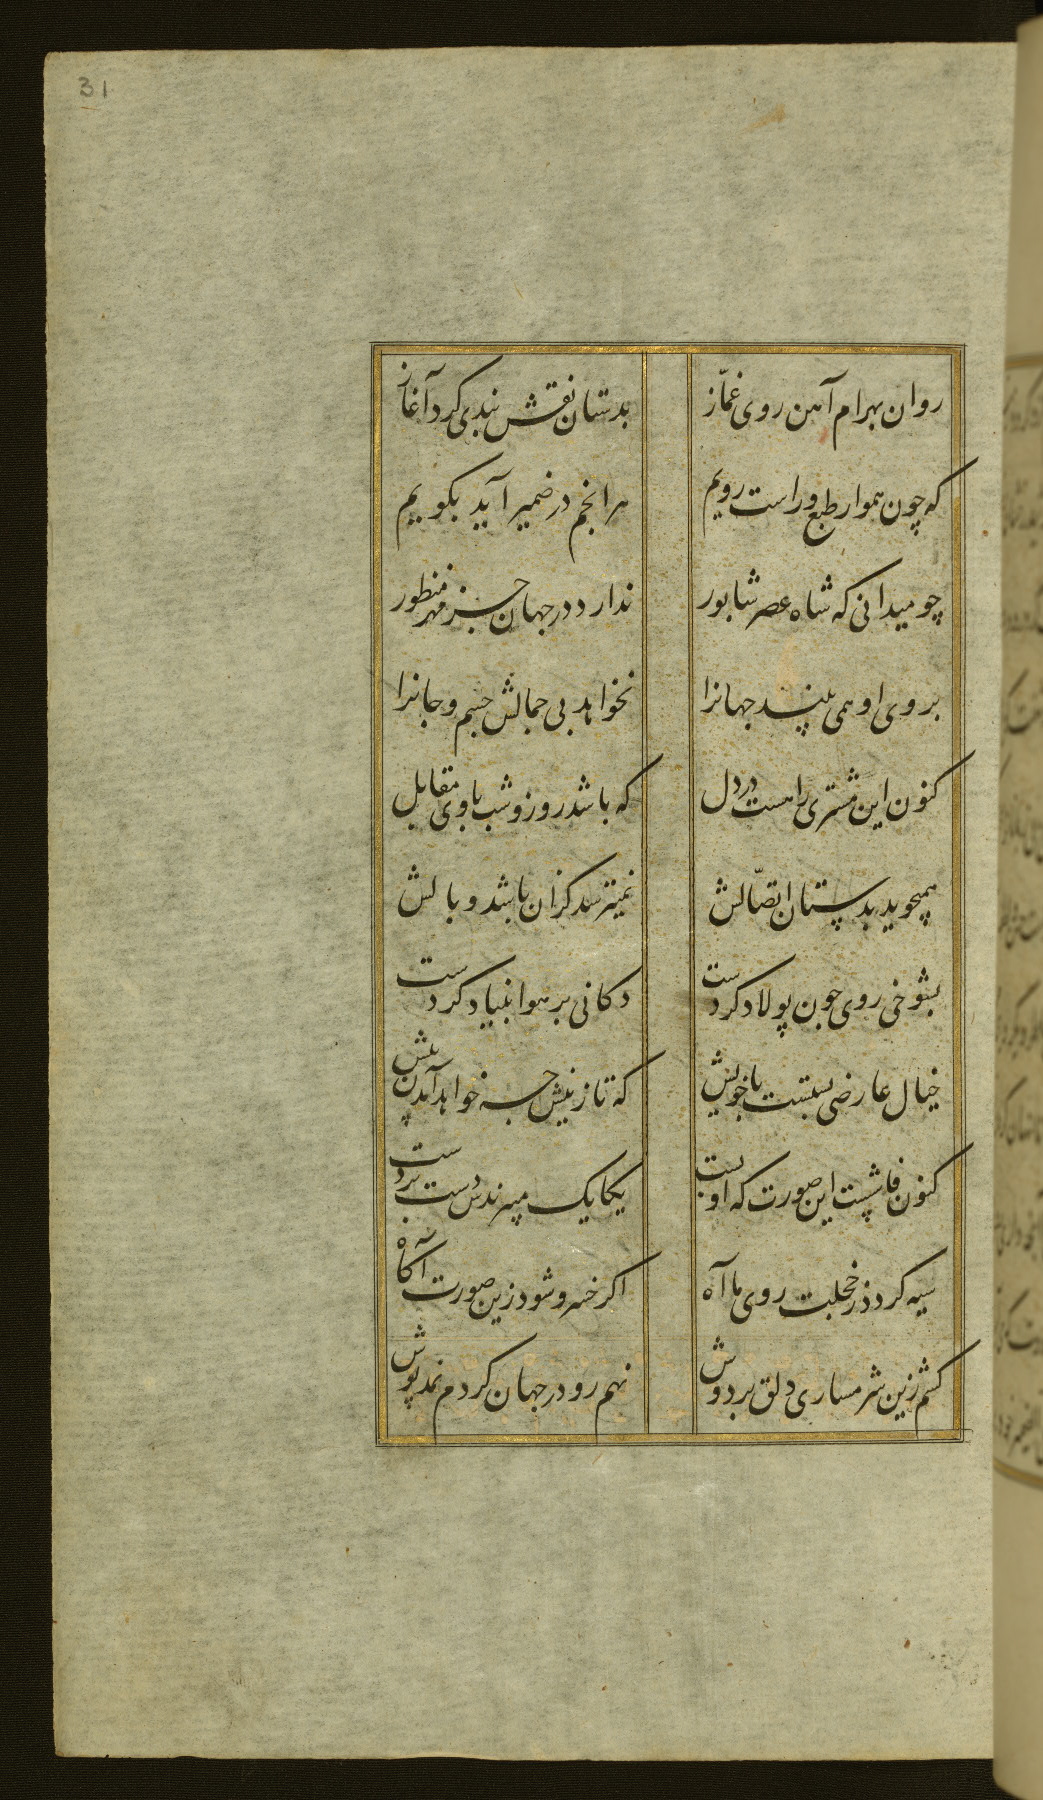 31
روان بهرام آهن روی غمّاز
بدستان نقش بندی کرد آغاز
که چون هموار طبع و راست رویم
هر انجم در ضمیر آید بکویم
چو میدانی که شاه عصر شابور
ندارد در جهان جز مهر منظور
بروی او همی بیند جهانرا
نخواهد بی جمالش جسم و جانرا
کنون این مشتری را هست در دل
که باشد روز و شب با وی مقابل
همیجوید بدستان اتصّالش
نمیترسد کزان باشد وبالش
بشوخی روی چون پولاد کردست
دکانی بر هوا بنیاد کردست
خیال عارضی بستست با خویش
که تا زنیش چه خواهد آمدن پیش
کنون فاشست این صورت که او بست
یکایک میزندش دست بر دست
سیه کردد ز خجلت روی ما آه
اکر خسرو شود زین صورت آکاه
کشم زین شرمساری دلق بر دوش
نهم رو در جهان کردم نمد پوش